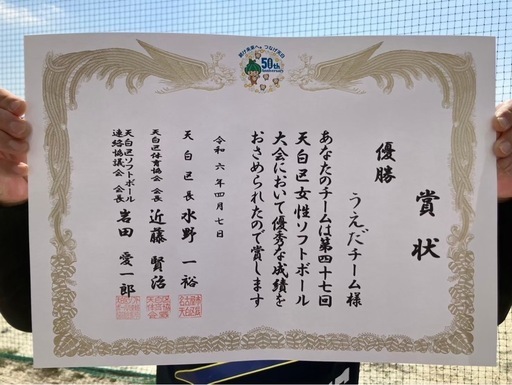 賞状
優勝
うえだチーム様
あなたのチームは第四十七回
天白区女性ソフトボール
大会において優秀な成績を
おさめられたので賞します
令和六年四月七日
天白区長 水野 一裕
天白区体育協会 会長 近藤 賢治
天白区ソフトボール
連絡協議会 会長 岩田 愛一郎
50th